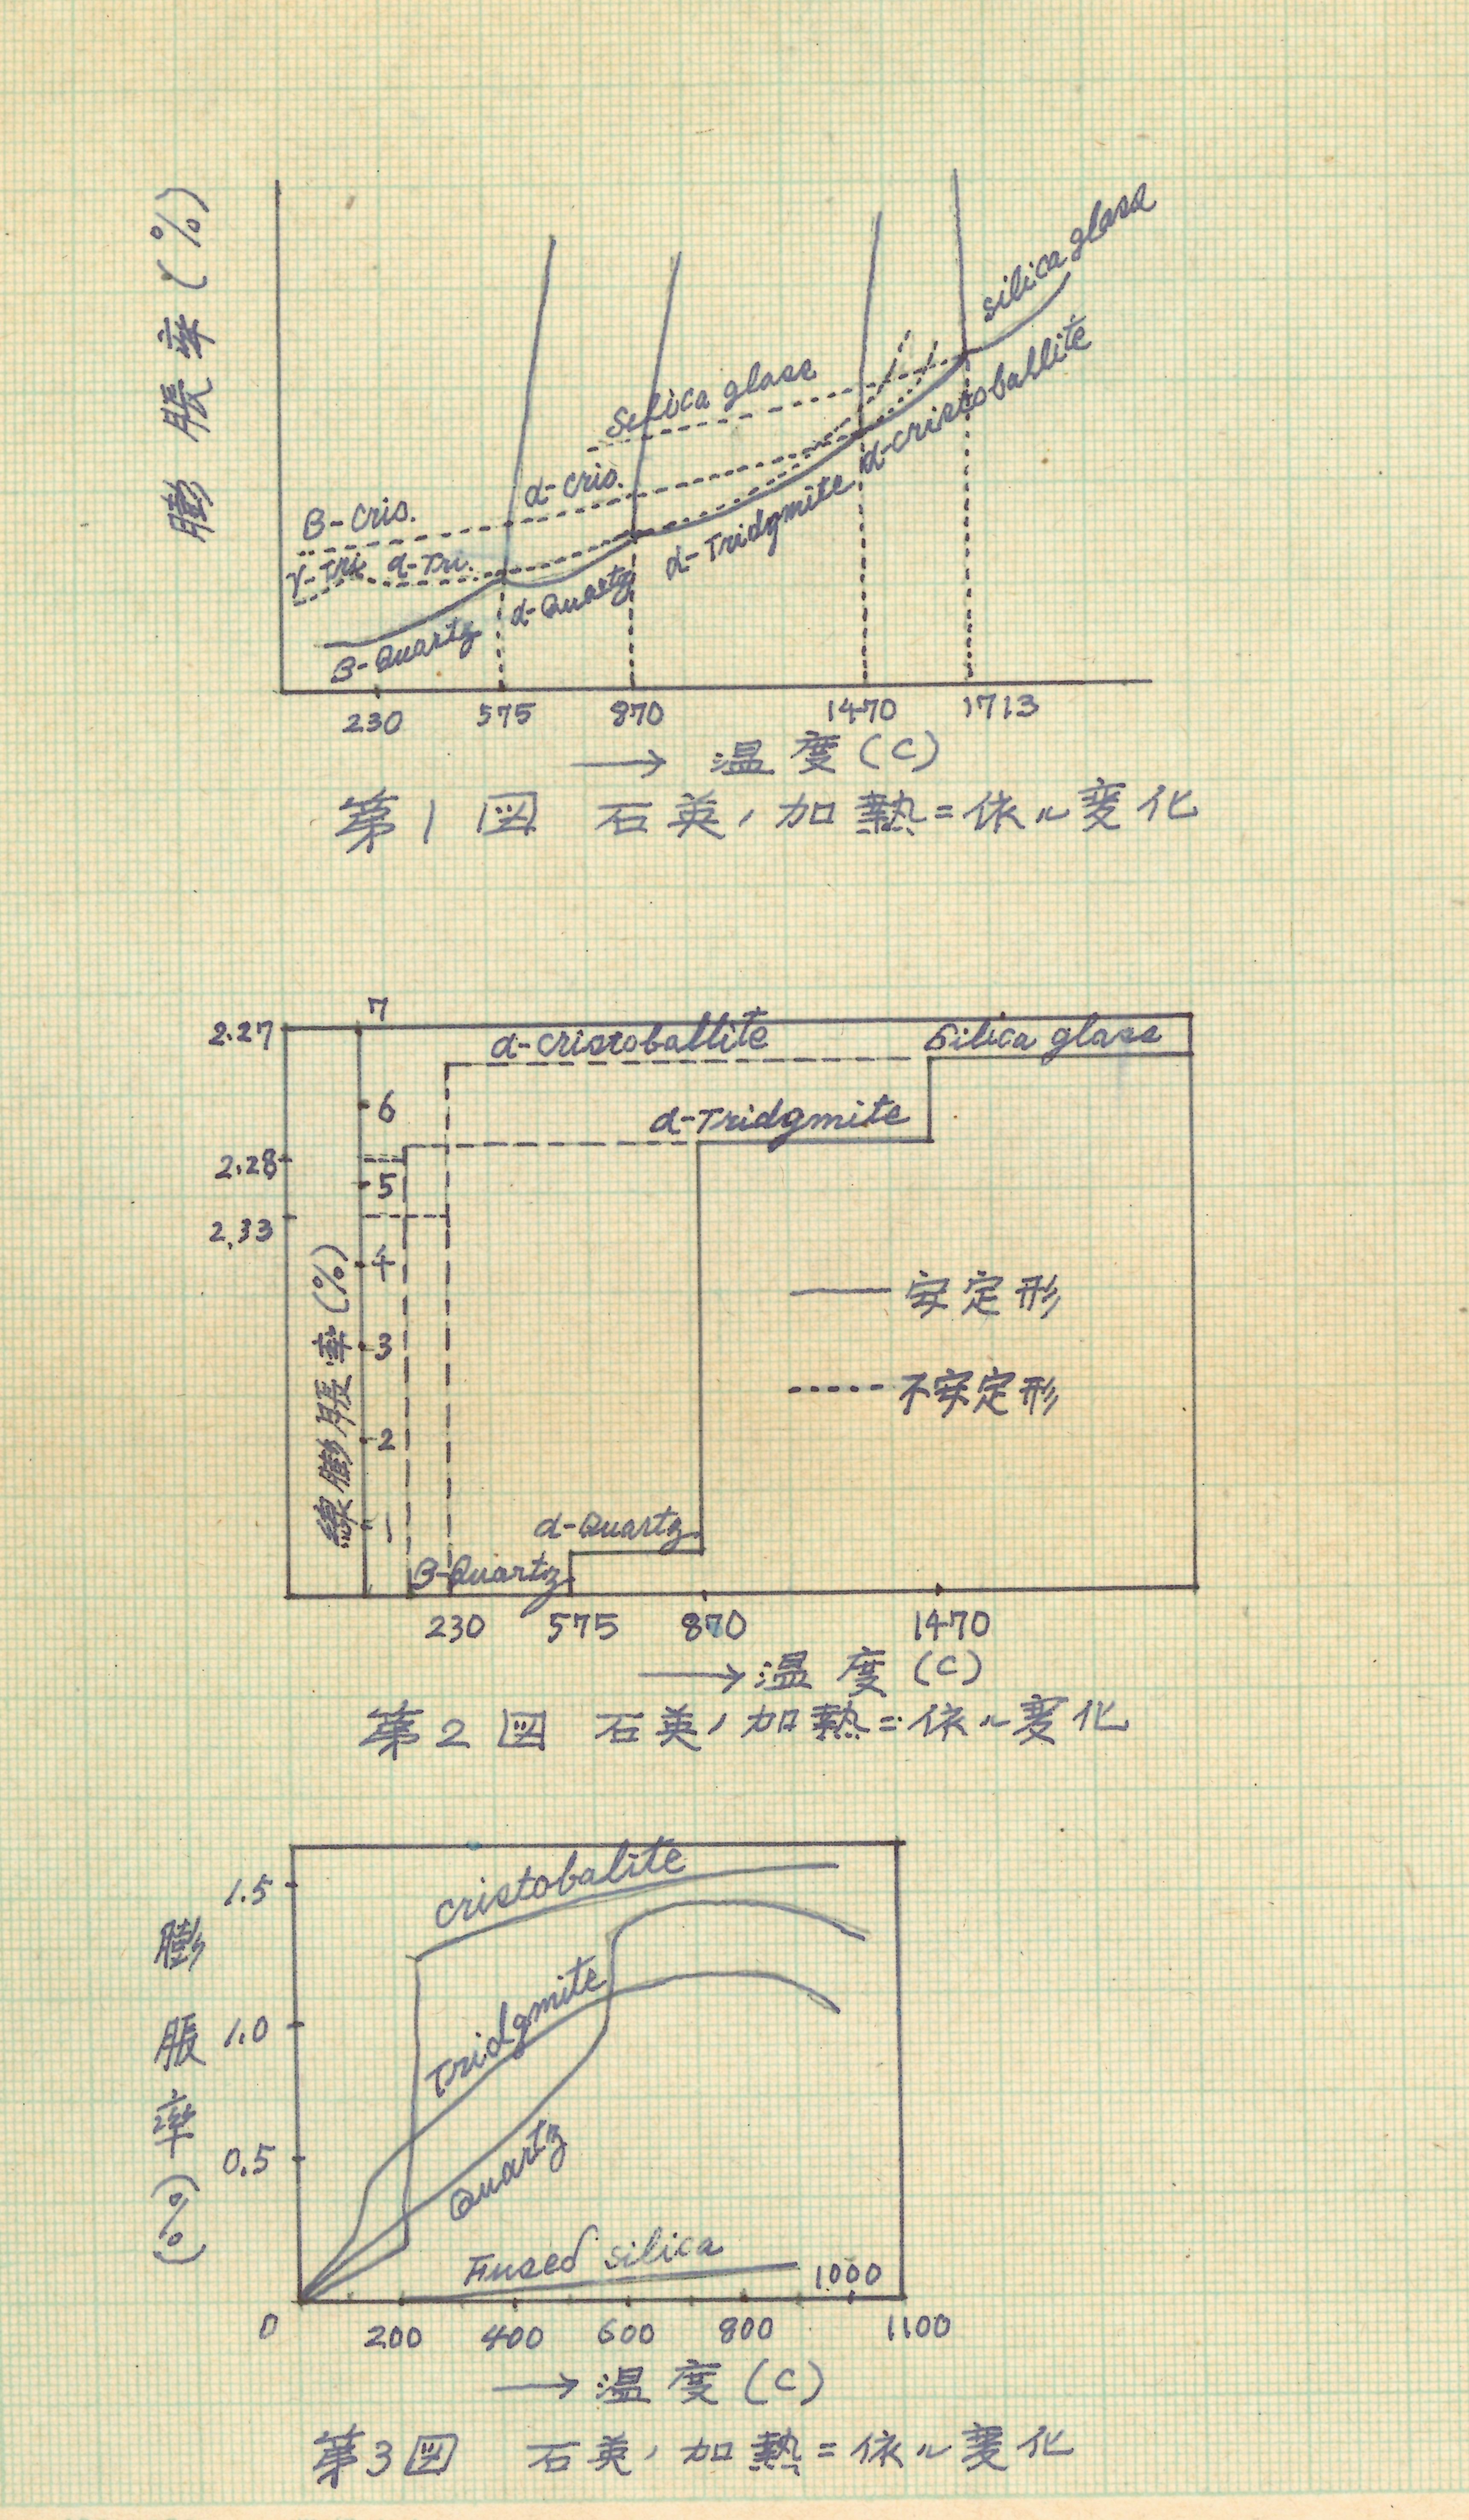 膨脹率(%)
silica glass
Silica glass
α-cristoballite
α-cris.
β-cris.
γ-Tri. α-Tri.
α-Tridgmite
α-Quartz
β-Quartz
230 575 870 1470 1713
→ 温度(C)
第1図 石英ノ加熱ニ依ル変化
7
2.27
α-cristoballite Silica glass
6
α-Tridgmite
2.28
5
2.33
4
安定形
3
不安定形
2
線膨脹率(%)
1
α-Quartz
β-Quartz
230 575 870 1470
→温度(C)
第2図 石英ノ加熱ニ依ル変化
cristobalite
1.5
膨脹率(%)
Tridgmite
1.0
Quartz
0.5
Fused silica
1000
0 200 400 600 800 1100
→温度(C)
第3図 石英ノ加熱ニ依ル変化